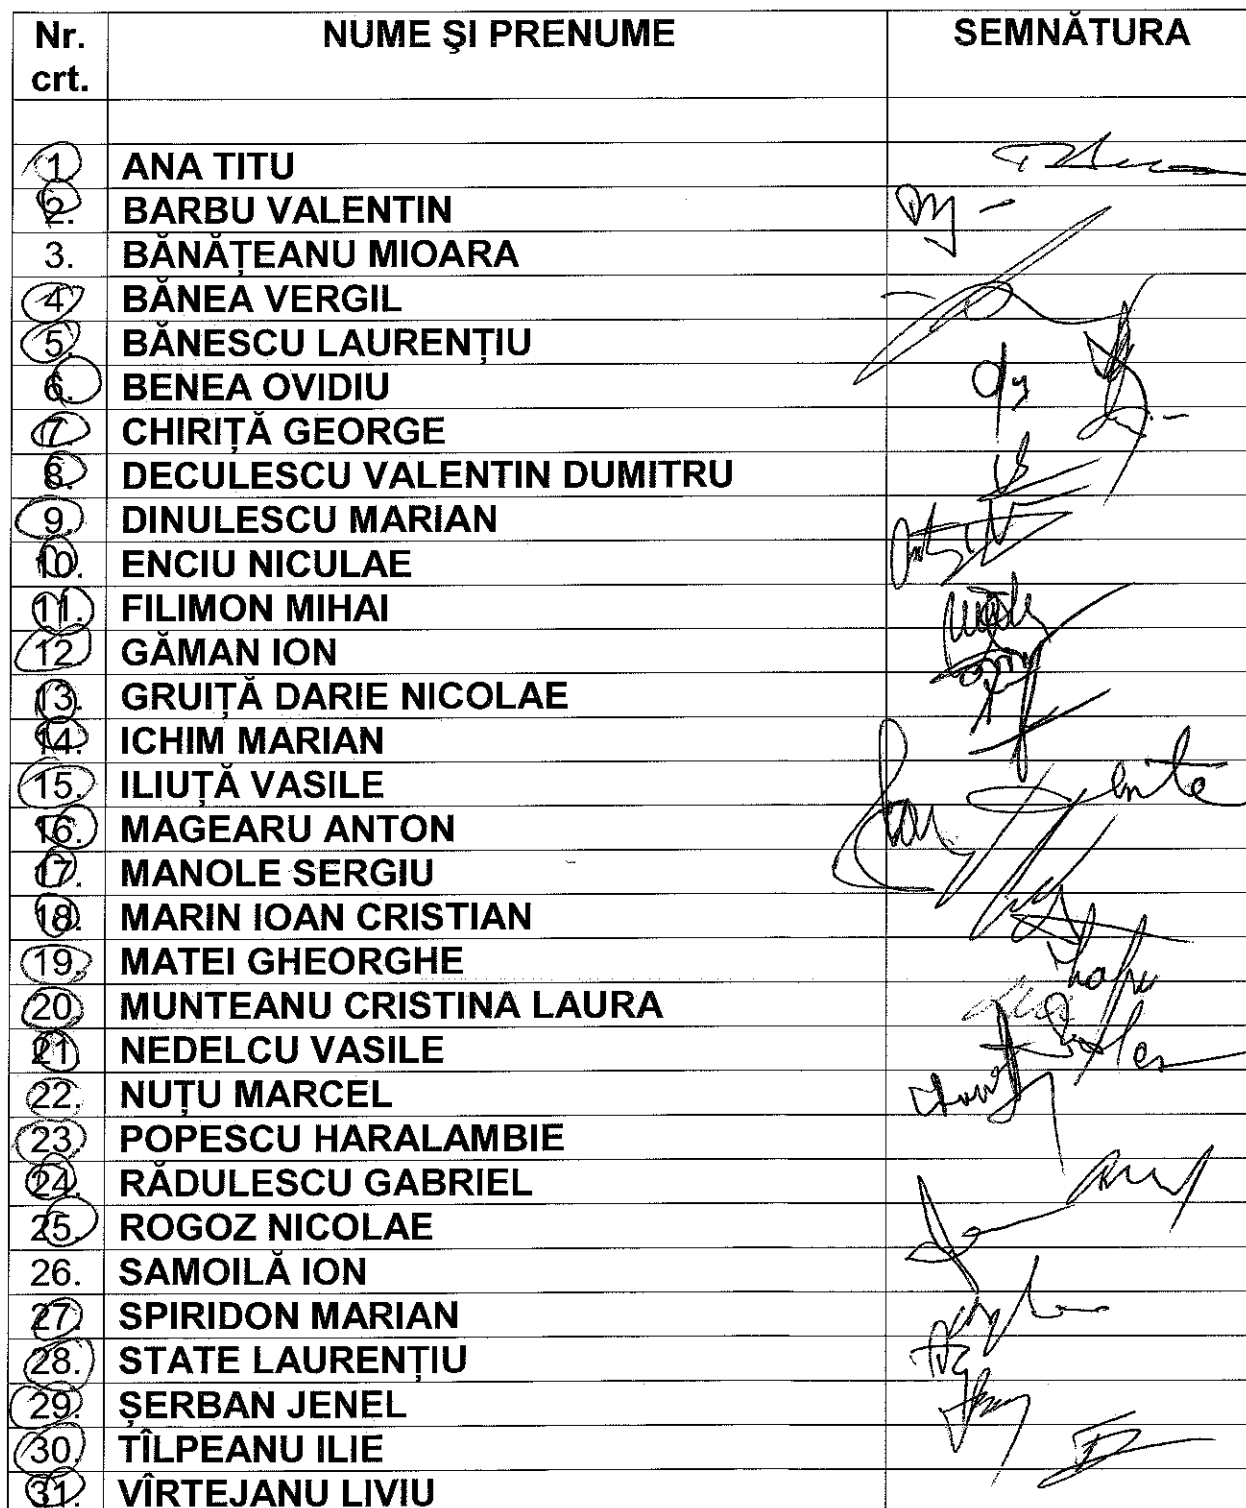 Nr. crt. NUME ŞI PRENUME SEMNĂTURA
1 ANA TITU
2. BARBU VALENTIN
3. BĂNĂȚEANU MIOARA
4 BĂNEA VERGIL
5. BĂNESCU LAURENȚIU
6. BENEA OVIDIU
7 CHIRIȚĂ GEORGE
8. DECULESCU VALENTIN DUMITRU
9. DINULESCU MARIAN
10. ENCIU NICULAE
11. FILIMON MIHAI
12 GĂMAN ION
13. GRUIȚĂ DARIE NICOLAE
14. ICHIM MARIAN
15. ILIUȚĂ VASILE
16. MAGEARU ANTON
17. MANOLE SERGIU
18. MARIN IOAN CRISTIAN
19. MATEI GHEORGHE
20 MUNTEANU CRISTINA LAURA
21 NEDELCU VASILE
22. NUȚU MARCEL
23. POPESCU HARALAMBIE
24. RĂDULESCU GABRIEL
25. ROGOZ NICOLAE
26. SAMOILĂ ION
27. SPIRIDON MARIAN
28. STATE LAURENȚIU
29. ȘERBAN JENEL
30. TÎLPEANU ILIE
31. VÎRTEJANU LIVIU